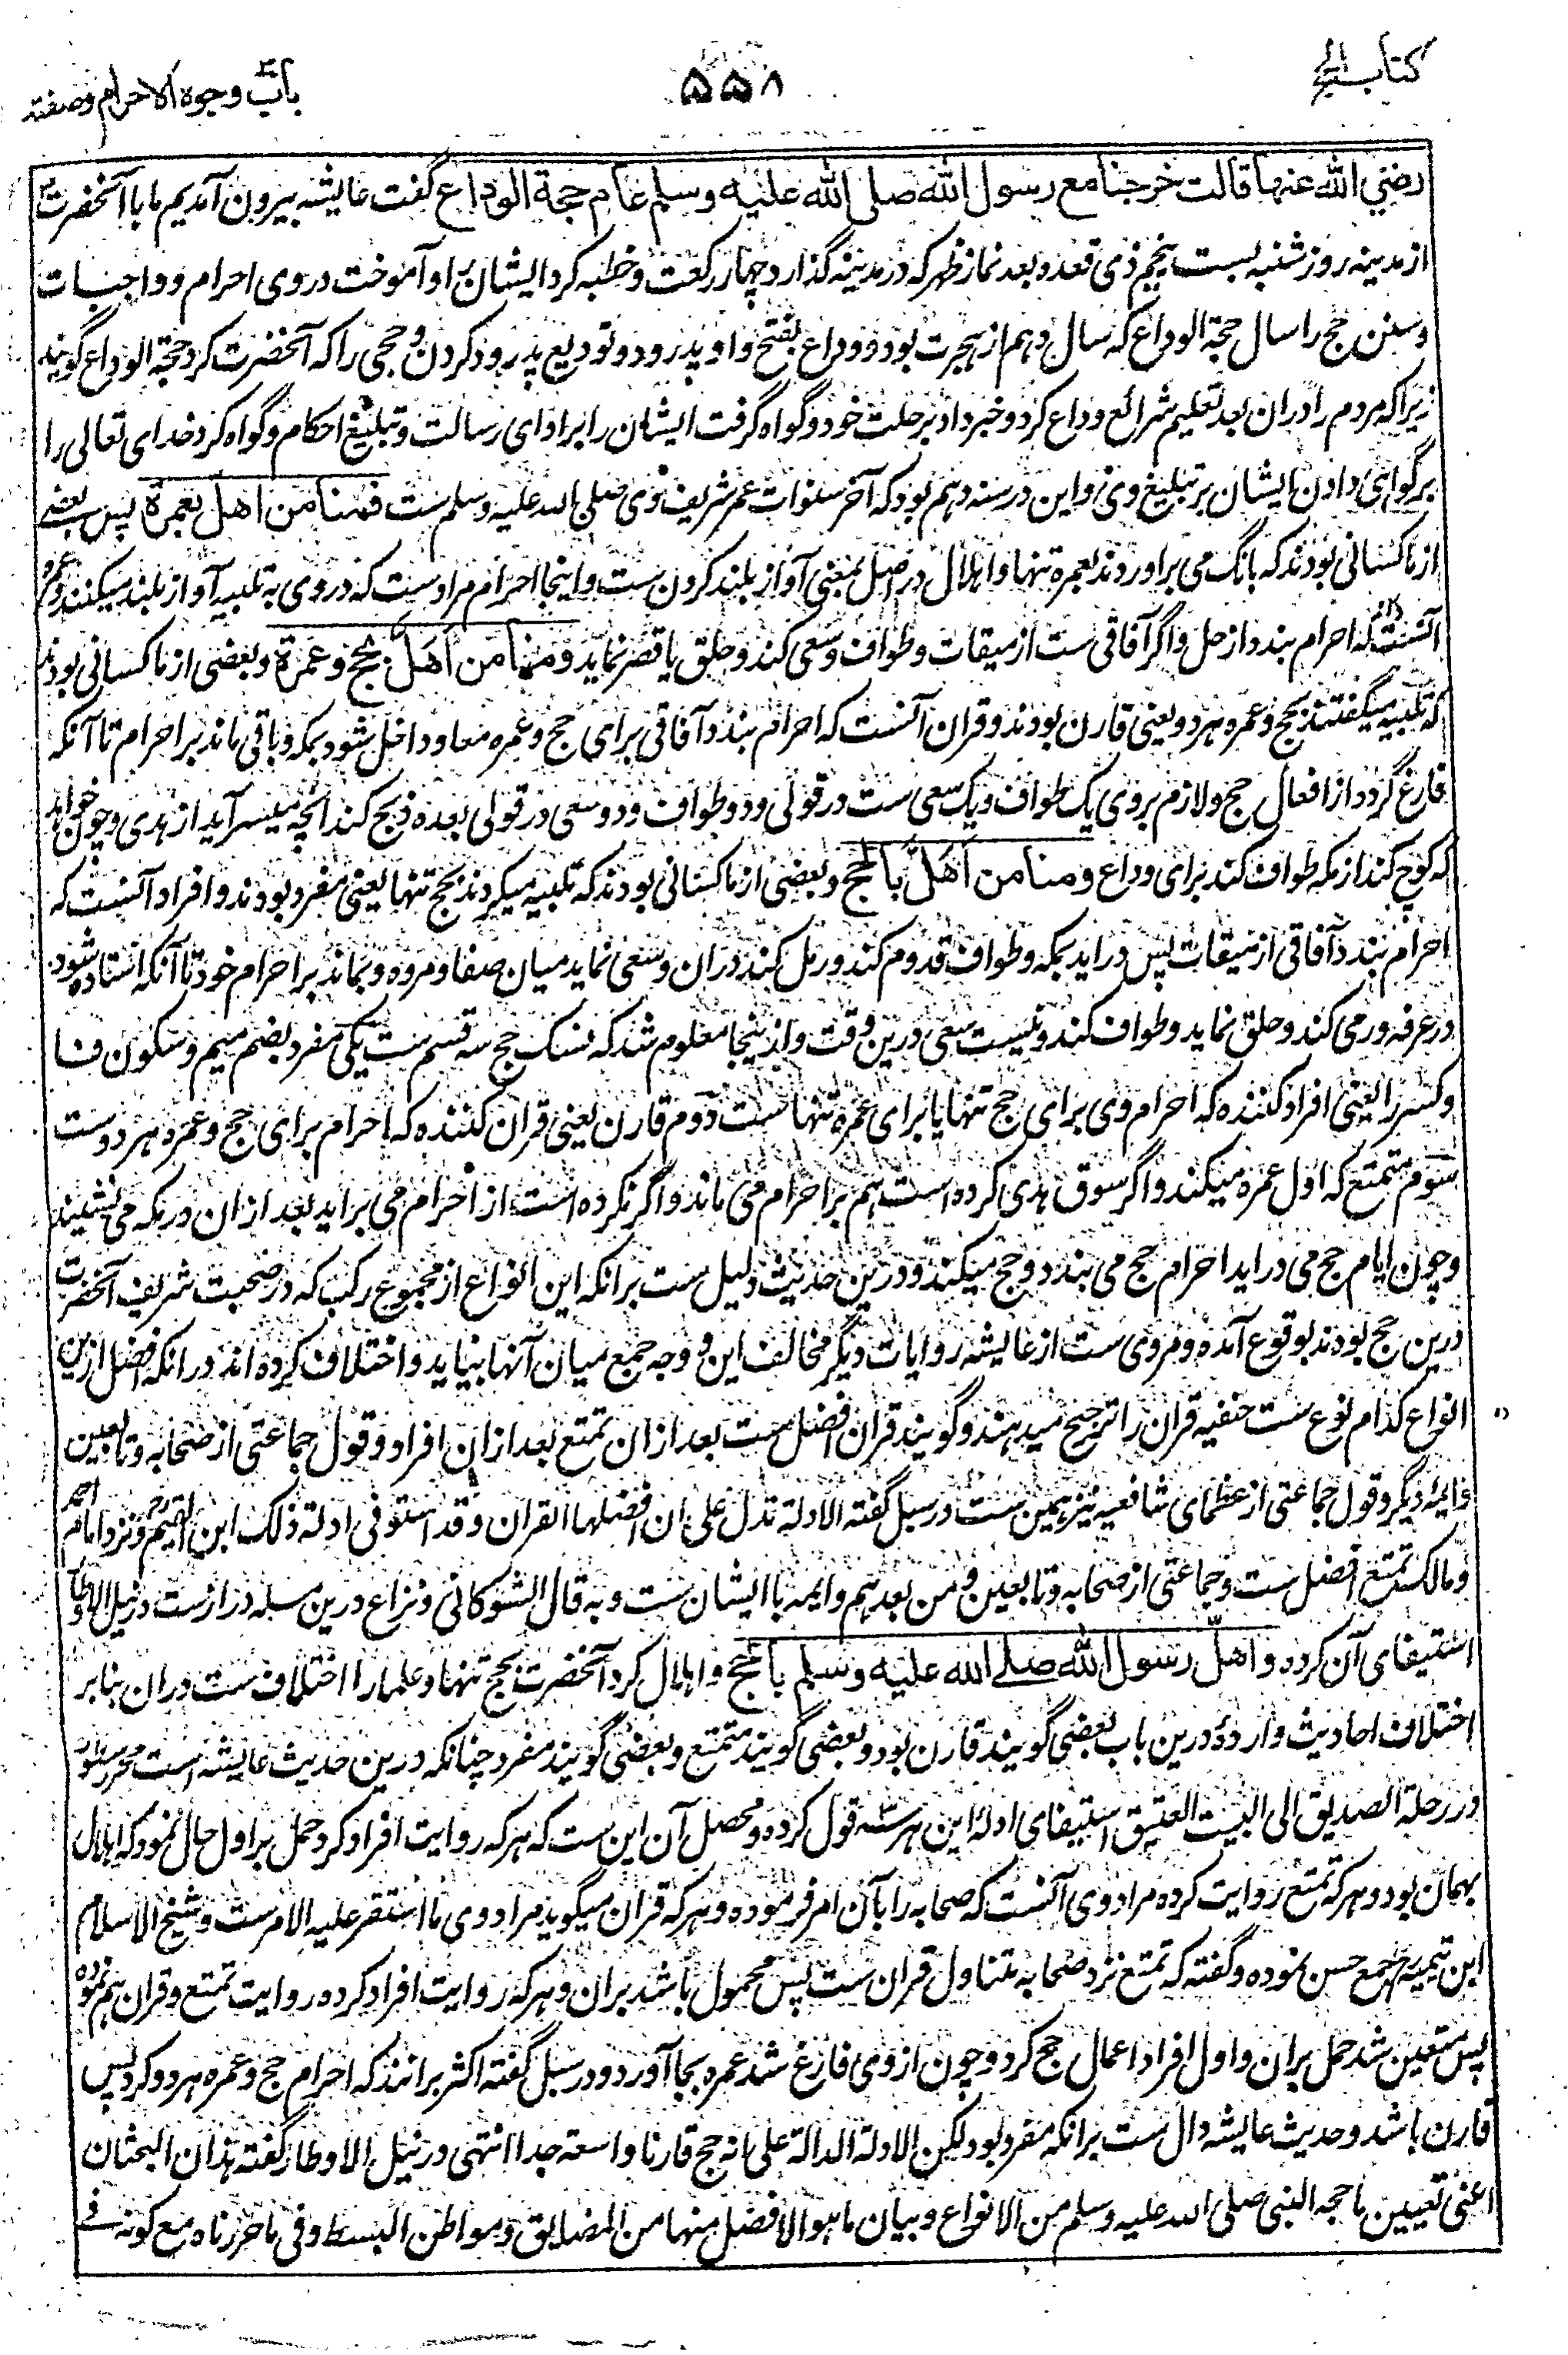 کتاب الحج
۵۵۸
باب وجوه الاحرام وصفته
رضي الله عنها قالت خرجنا مع رسول الله صلى الله عليه وسلم عام حجة الوداع گفت عایشه بیرون آمدیم ما با آنحضرت
از مدینه روز شنبه بست پنجم ذی قعده بعد نماز ظهر که در مدینه گذارد چهار رکعت و خطبه کرد ایشان را و آموخت در وی احرام و واجبات
و سنن حج را سال حجة الوداع که سال دهم از هجرت بود و وداع بفتح واو پدرود و تودیع پدرود کردن و حجی را که آنحضرت کرد حجة الوداع گویند
زیرا که مردم را دران بعد تعلیم شرائع وداع کرد و خبر داد بر حلت خود و گواه گرفت ایشان را بر ادای رسالت و تبلیغ احکام و گواه کرد خدای تعالی را
بر گواهی دادن ایشان بر تبلیغ وی و این در سنه دهم بود که آخر سنوات عمر شریف وی صلی الله علیه وسلم ست فمنا من اهل بعمرة پس بعضے
از ما کسانی بودند که بانگ می براوردند بعمره تنها و اهلال در اصل بمعنی آواز بلند کردن ست و اینجا احرام مراد ست که در وی به تلبیه آواز بلند میکنند و عمره
آنست که احرام بندد از حل و اگر آفاقی ست از میقات و طواف و سعی کند و حلق یا قصر نماید ومنا من اهل بحج وعمرة و بعضی از ما کسانی بودند
که تلبیه میگفتند بحج و عمره هر دو یعنی قارن بودند و قران آنست که احرام بندد آفاقی برای حج و عمره معا و داخل شود بمکه و باقی ماند بر احرام تا آنکه
فارغ گردد از افعال حج و لازم بر وی یک طواف و یک سعی ست در قولی و دو طواف و دو سعی در قولی بعده ذبح کند آنچه میسر آید از هدی و چون خواهد
که کوچ کند از مکه طواف کند برای وداع ومنا من اهل بالحج و بعضی از ما کسانی بودند که تلبیه میکردند بحج تنها یعنی مفرد بودند و افراد آنست که
احرام بندد آفاقی از میقات پس دراید بمکه و طواف قدوم کند و رمل کند دران و سعی نماید میان صفا و مروه و بماند بر احرام خود تا آنکه استاده شود
در عرفه و رمی کند و حلق نماید و طواف کند و نیست سعی درین وقت و ازینجا معلوم شد که نسک حج سه قسم ست یکی مفرد بضم میم و سکون فا
و کسر را یعنی افراد کننده که احرام وی برای حج تنها یا برای عمره تنها ست دوم قارن یعنی قران کننده که احرام برای حج و عمره هر دو ست
سوم متمتع که اول عمره میکند و اگر سوق هدی کرده است هم بر احرام می ماند و اگر نکرده است از احرام می براید بعد ازان در مکه می نشیند
و چون ایام حج می دراید احرام حج می بندد و حج میکند و درین حدیث دلیل ست برانکه این انواع از مجموع رکب که در صحبت شریف آنحضرت
درین حج بودند بوقوع آمده و مروی ست از عایشه روایات دیگر مخالف این و وجه جمع میان آنها بیاید و اختلاف کرده اند درانکه افضل ازین
انواع کدام نوع ست حنفیه قران را ترجیح میدهند و گویند قران افضل ست بعد ازان تمتع بعد ازان افراد و قول جماعتی از صحابه و تابعین
و ایمه دیگر و قول جماعتی از عظمای شافعیه نیز همین ست در سبل گفته الادلة تدل علی ان افضلها القران وقد استوفی ادلة ذلک ابن القیم رح و نزد امام احمد
و مالک تمتع افضل ست و جماعتی از صحابه و تابعین و من بعدهم و ایمه با ایشان ست و به قال الشوکانی و نزاع درین مسله دراز ست در نیل الاوطار
استیفای آن کرده واهل رسول الله صلے الله عليه وسلم بالحج و اهلال کرد آنحضرت بحج تنها و علما را اختلاف ست دران بنابر
اختلاف احادیث وارده درین باب بعضی گویند قارن بود و بعضی گویند متمتع و بعضی گویند مفرد چنانکه درین حدیث عایشه است محرر سطور
در رحلة الصدیق الی البیت العتیق استیفای ادلهٔ این هر سه قول کرده و محصل آن این ست که هر که روایت افراد کرد حمل بر اول حال نمود که اهلال
بهمان بود و هر که تمتع روایت کرده مراد وی آنست که صحابه را بآن امر فرموده و هر که قران میگوید مراد وی ما استقر علیه الامر ست و شیخ الاسلام
ابن تیمیه رح جمع حسن نموده و گفته که تمتع نزد صحابه متناول قران ست پس محمول باشد بران و هر که روایت افراد کرده روایت تمتع و قران هم نموده
پس متعین شد حمل بران و اول افراد اعمال حج کرد و چون از وی فارغ شد عمره بجا آورد و در سبل گفته اکثر برانند که احرام حج و عمره هر دو کرد پس
قارن باشد و حدیث عایشه دال ست برانکه مفرد بود لکن الادلة الدالة علی انه حج قارنا واسعة جدا انتهی و در نیل الاوطار گفته هذان البحثان
اعنی تعیین ما حجه النبی صلی الله علیه وسلم من الانواع و بیان ما هو الافضل منها من المضایق و مواطن البسط و فی ما حررناه مع کونه فے